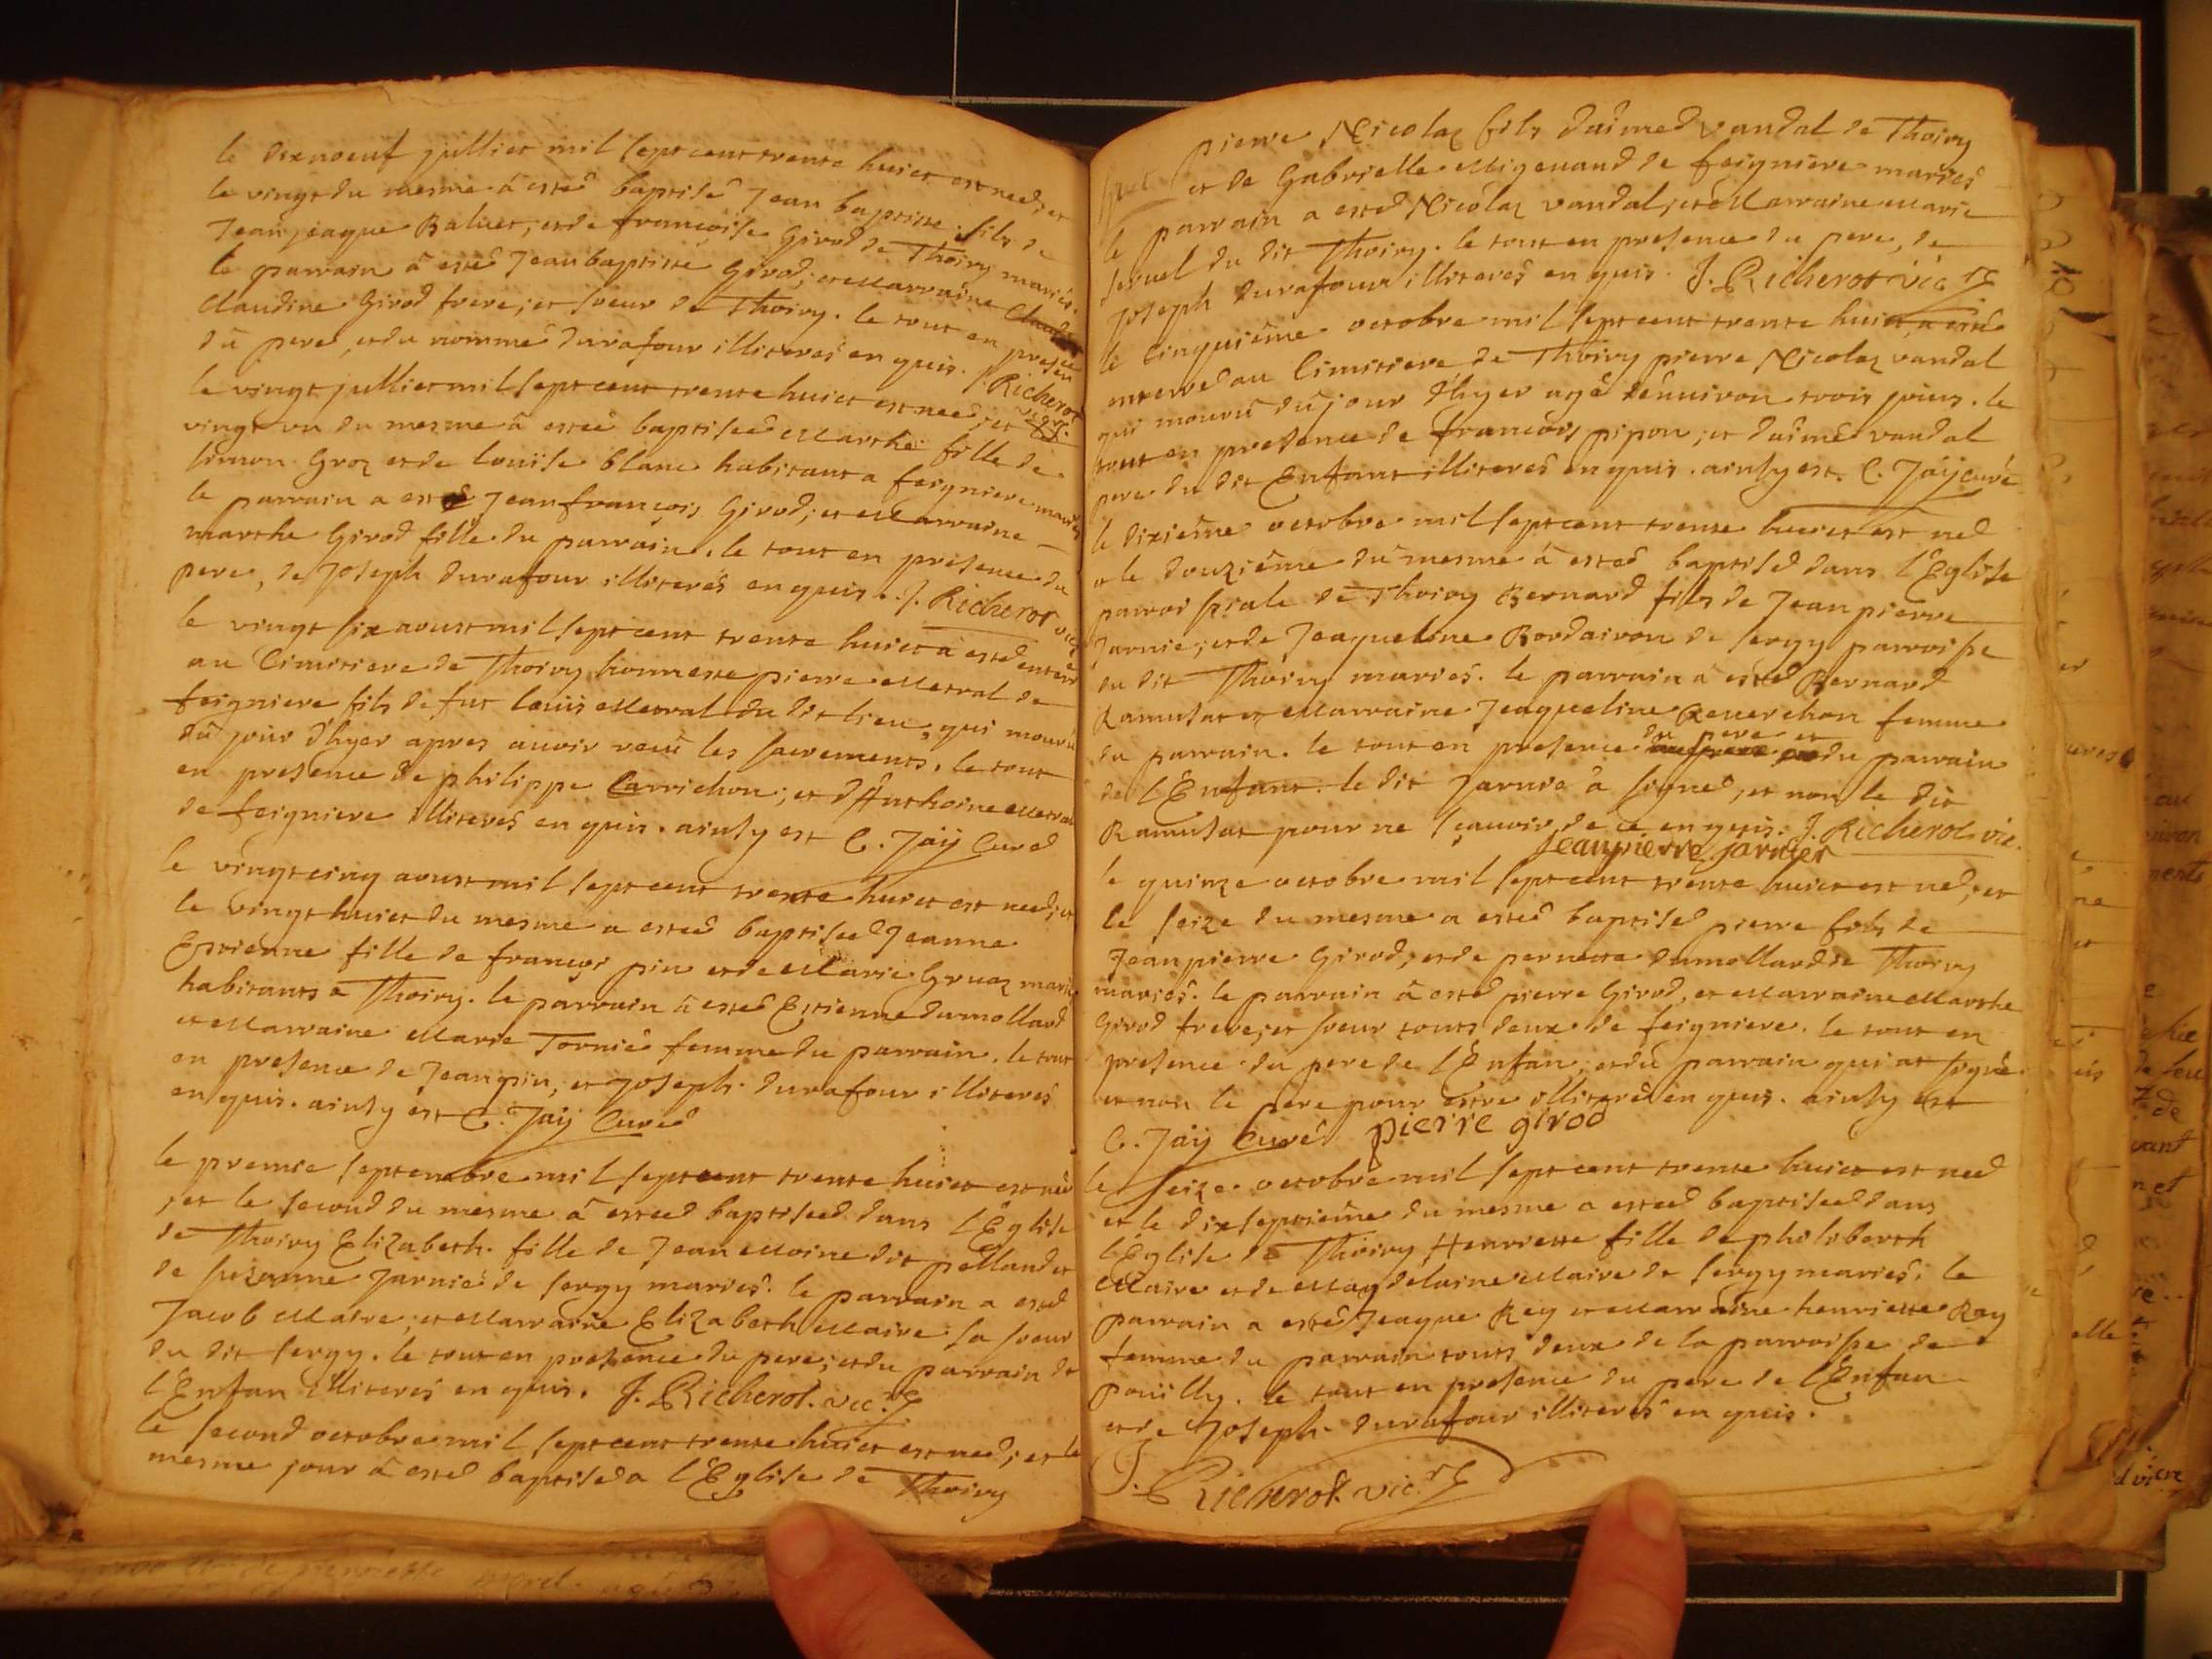 le dixneuf julliet mil sept cent trente huict est neé; et
le vingt du mesme â esteé baptisé Jean baptiste fils de
Jeanjeaque Baluet, et de francoise Girod de Thoiry mariés.
le parrain â esté Jeanbaptiste Girod; et Marraine
Claudine Girod frere; et soeur de Thoiry. le tout en presen
du pere, et du nommé durafour illiterés enquis. J. Richerot vicre
le vingt julliet mil sept cent trente huict est neé; et
vingt un du mesme â esteé baptiseé Marthe fille de
simon Groz et de louise blanc habitant a feigniere mariés
le parrain a esté Jeanfrançois Girod; et Marraine
marthe Girod fille du parrain. le tout en presence du
pere, de Joseph durafour illiterés enquis. J. Richerot vicre
le vingt six aoust mil sept cent trente huict a esté enterré
au Cimitiere de Thoiry honneste pierre Mestral de
feigniere fils de fut louis Mestral du dit lieu, qui mouru
du jour d'hyer apres avoir receu les sacrements. le tout
en presence de philippe Carrichon; et d'Anthoine Mestral
de feigniere illiterés enquis. ainsy est C. Jaÿ Curé
le vingtcinq aoust mil sept cent trente huict est neé; et
le vingthuict du mesme a esteé baptiseé Jeanne
Estienne fille de françois pin et de Marie Gruaz mariés
habitants a Thoiry. le parrain â esté Estienne dumollard
et Marraine Marie Tornié femme du parrain. le tout
en presence de Jean pin, et Joseph durafour illiterés
enquis. ainsy est C. Jaÿ Curé
le premie septembre mil sept cent trente huict est neé
; et le second du mesme â esteé baptiseé dans l'Eglise
de Thoiry Elizabeth fille de Jean Moine dit pelland et
de suzanne Jarnié de sergy mariés. le parrain a esté
Jacob Maire; et Marraine Elizabeth Maire sa soeur
du dit sergy. le tout en presence du pere; et du parrain de
l'Enfan illiterés enquis. J. Richerot. vic.re
le second octobre mil sept cent trente huict est neé; et le
mesme jour â esté baptisé a l'Eglise de Thoiry
pierre Nicolaz fils d'aimé vandal de Thoiry
et de Gabrielle Migenand de feigniere mariés
le parrain a esté Nicolaz vandal, et Marraine Marie
du dit Thoiry. le tout en presence du pere, de
Joseph durafour illiterés enquis. J. Richerot vicre
le Cinquiéme octobre mil sept cent trente huict a esté
enterré au Cimitiere de Thoiry pierre Nicolaz vandal
qui mouru du jour d'hyer agé d'environ trois jours. le
tout en presence de francois pipon; et d'aimé vandal
pere du dit Enfant illiterés enquis. ainsy est. C. Jaÿ curé
le dixiéme octobre mil sept cent trente huict est neé
et le douziéme du mesme â esté baptisé dans l'Eglise
parroissiale de Thoiry Bernard fils de Jean pierre
Jarnié; et de Jeaqueline Bordairon de sergy parroisse
du dit Thoiry mariés. le parrain â esté Bernard
Ramusat et Marraine Jeaqueline Reverchon femme
du parrain. le tout en presence du pere et du parrain
de l'Enfant. le dit Jarnié â signé, et non le dit
Ramusat pour ne sçauoir de ce enquis. J. Richerot. vic.
Jeanpierre jarnier
le quinze octobre mil sept cent trente huict est neé; et
le seize du mesme a esté baptisé pierre fils de
Jeanpierre Girod; et de pernette dumollard de Thoiry
mariés. le parrain â esté pierre Girod, et Marraine Marthe
Girod frere; et soeur touts deux de feigniere. le tout en
presence du pere de l'Enfan; et du parrain qui at signé
et non le pere pour estre illiteré enquis. ainsy est
C. Jaÿ Curé pierre girod
le seize octobre mil sept cent trente huict est neé
et le dixseptiéme du mesme a esteé baptiseé dans
l'Eglise de Thoiry Henriette fille de philiberth
Maire et de Magdelaine Maire de sergy mariés; le
parrain a esté Jeaque Rey et Marraine henriette Rey
femme du parrain touts deux de la parroisse de
pouilly. le tout en presence du pere de l'Enfan
et de Joseph durafour illiterés enquis.
J. Richerot. vic.re